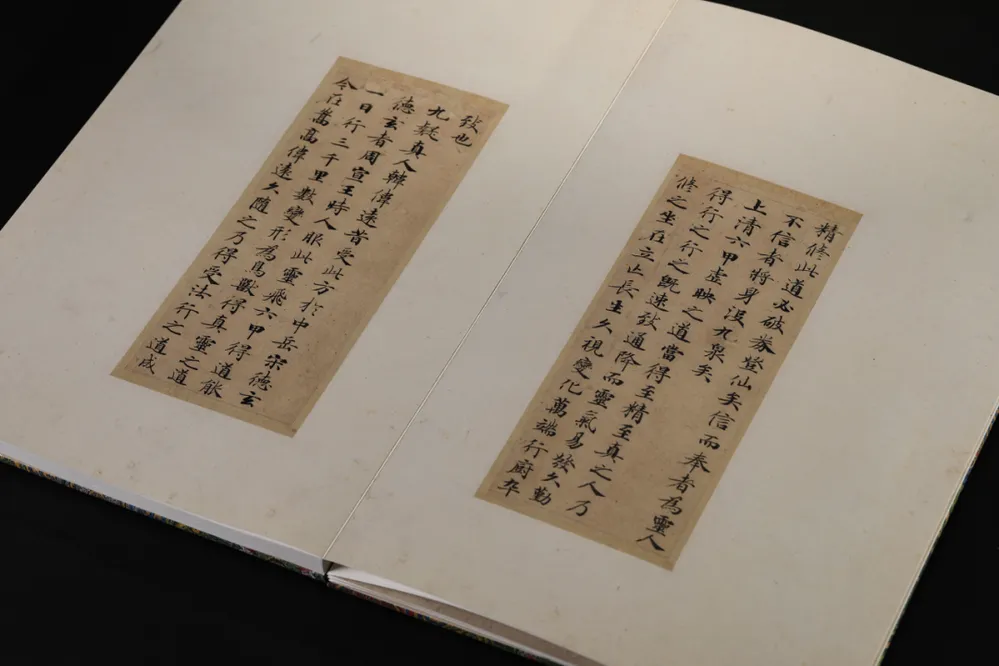 精修此道必破券登仙矣信而奉者為靈人
不信者將身沒九泉矣
上清六甲虛映之道當得至精至真之人乃
得行之行之既速致道降而靈氣易發久勤
修之坐在立亡長生久視變化萬端行廚卒
致也
九疑真人韓偉遠昔受此方於中岳宋德玄
德玄者周宣王時人服此靈飛六甲得道能
一日行三千里數變形為鳥獸得真靈之道
今在嵩高偉遠久隨之乃得受法行之道成